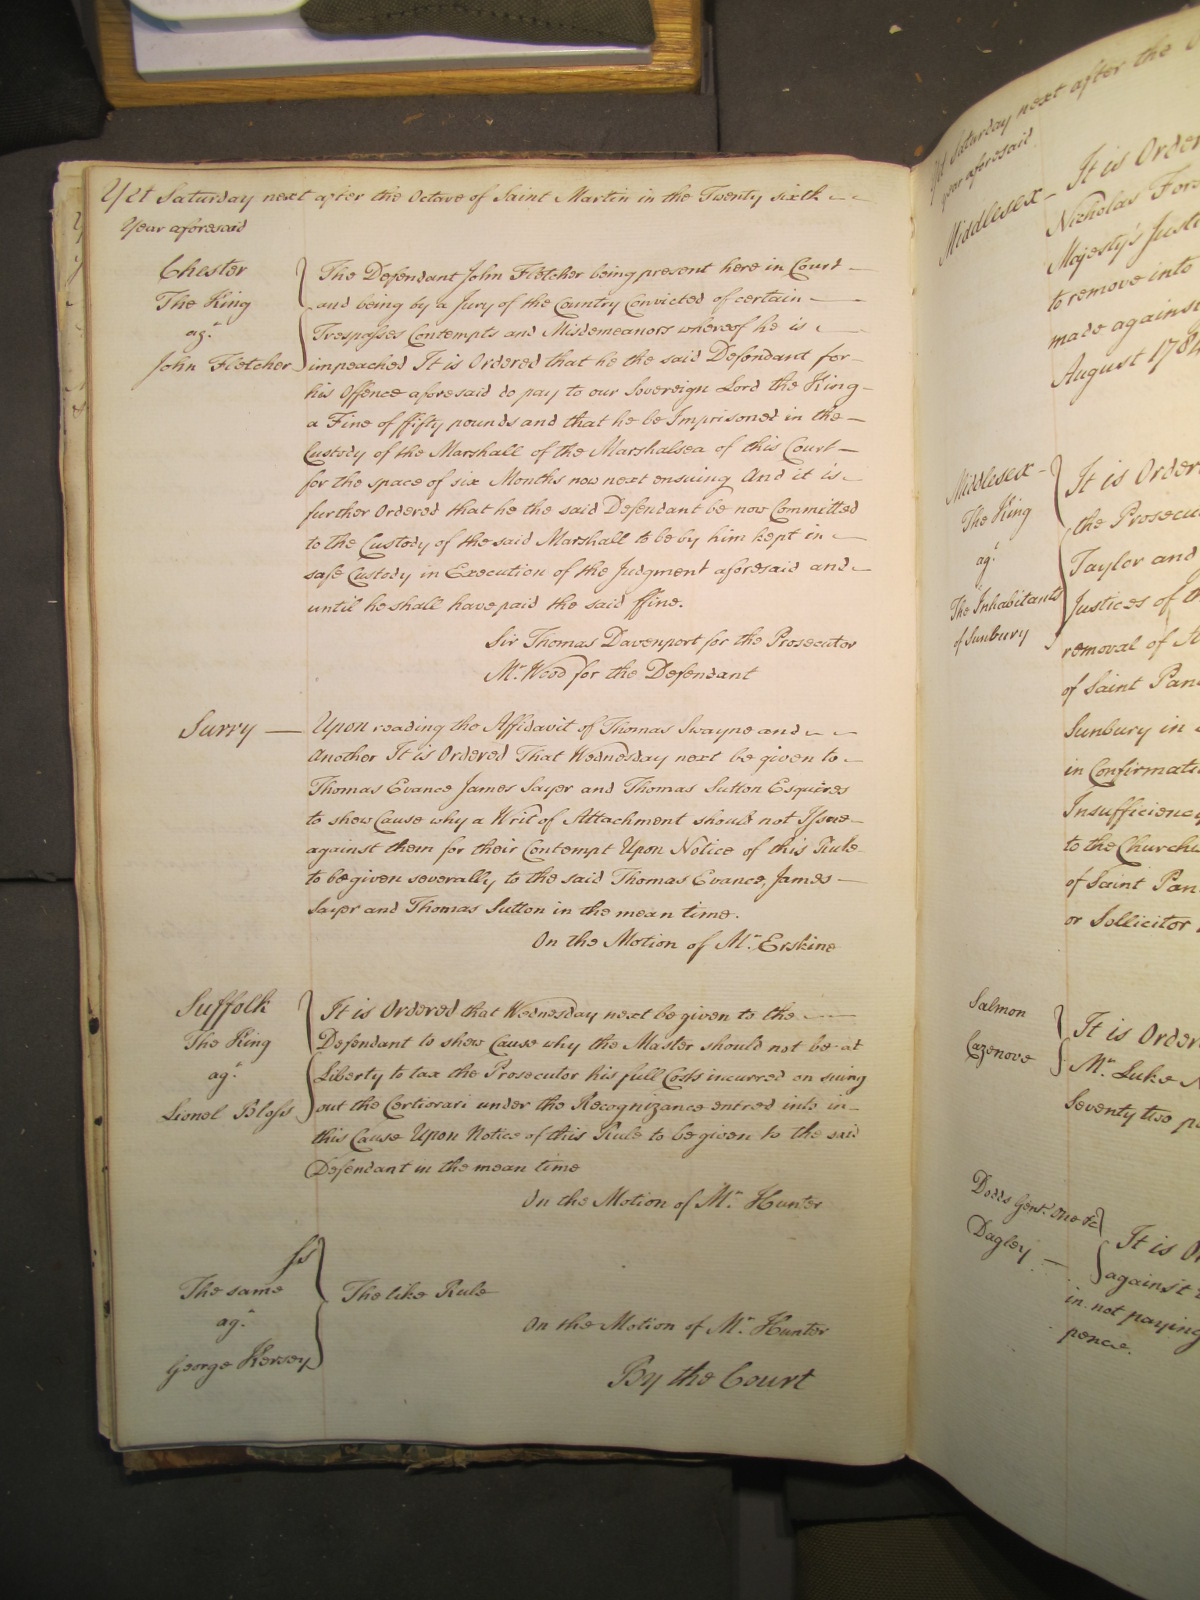 Yet Saturday next after the Octave of Saint Martin in the Twenty sixth
Year aforesaid
Chester
The King
agt.
John Fletcher
The Defendant John Fletcher being present here in Court
and being by a Jury of the Country Convicted of certain
Trespasses Contempts and Misdemeanors whereof he is
impeached It is Ordered that he the said Defendant for
his Offence aforesaid do pay to our Sovereign Lord the King
a Fine of ffifty pounds and that he be Imprisoned in the
Custody of the Marshall of the Marshalsea of this Court
for the space of six Months now next ensuing And it is
further Ordered that he the said Defendant be now Committed
to the Custody of the said Marshall to be by him kept in
safe Custody in Execution of the Judgment aforesaid and
until he shall have paid the said ffine.
Sir Thomas Davenport for the Prosecutor
Mr. Wood for the Defendant
Surry
Upon reading the Affidavit of Thomas Swayne and
Another It is Ordered That Wednesday next be given to
Thomas Evance James Sayer and Thomas Sutton Esquires
to shew Cause why a Writ of Attachment should not Issue
against them for their Contempt Upon Notice of this Rule
to be given severally to the said Thomas Evance, James
Sayer and Thomas Sutton in the mean time.
On the Motion of Mr. Erskine
Suffolk
The King
agt.
Lionel Bloss
It is Ordered that Wednesday next be given to the
Defendant to shew Cause why the Master should not be at
Liberty to tax the Prosecutor his full Costs incurred on suing
out the Certiorari under the Recognizance entred into in
this Cause Upon Notice of this Rule to be given to the said
Defendant in the mean time
On the Motion of Mr. Hunter
ss
The same
agt.
George Kersey
The like Rule
On the Motion of Mr. Hunter
By the Court
Yet Saturday next after the
year aforesaid
Middlesex
It is Order
Nicholas For
Majesty's Justi
to remove into
made against
August 1784
Middlesex
The King
agt.
The Inhabitants
of Sunbury
It is Order
the Prosecu
Taylor and
Justices of
removal of
of Saint Pan
Sunbury in
in Confirmati
Insufficiency
to the Churchw
of Saint Pan
or Sollicitor
Salmon
Cazenove
It is Order
Mr. Luke N
Seventy two p
Dodds Gent. One &c
Dagley
It is Or
against
in not paying
pence.